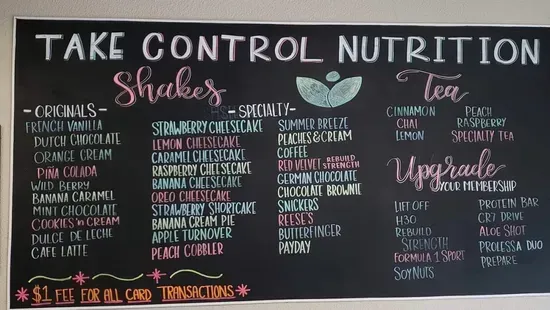 TAKE CONTROL NUTRITION
Shakes
- ORIGINALS -
FRENCH VANILLA
DUTCH CHOCOLATE
ORANGE CREAM
PIÑA COLADA
WILD BERRY
BANANA CARAMEL
MINT CHOCOLATE
COOKIES 'n CREAM
DULCE DE LECHE
CAFE LATTE
- SPECIALTY -
STRAWBERRY CHEESECAKE
LEMON CHEESECAKE
CARAMEL CHEESECAKE
RASPBERRY CHEESECAKE
BANANA CHEESECAKE
OREO CHEESECAKE
STRAWBERRY SHORTCAKE
BANANA CREAM PIE
APPLE TURNOVER
PEACH COBBLER
SUMMER BREEZE
PEACHES & CREAM
COFFEE
RED VELVET REBUILD STRENGTH
GERMAN CHOCOLATE
CHOCOLATE BROWNIE
SNICKERS
REESE'S
BUTTERFINGER
PAYDAY
Tea
CINNAMON
CHAI
LEMON
PEACH
RASPBERRY
SPECIALTY TEA
Upgrade
YOUR MEMBERSHIP
LIFT OFF
H3O
REBUILD
STRENGTH
FORMULA 1 SPORT
SOY NUTS
PROTEIN BAR
CR7 DRIVE
ALOE SHOT
PROLESSA DUO
PREPARE
$1 FEE FOR ALL CARD TRANSACTIONS